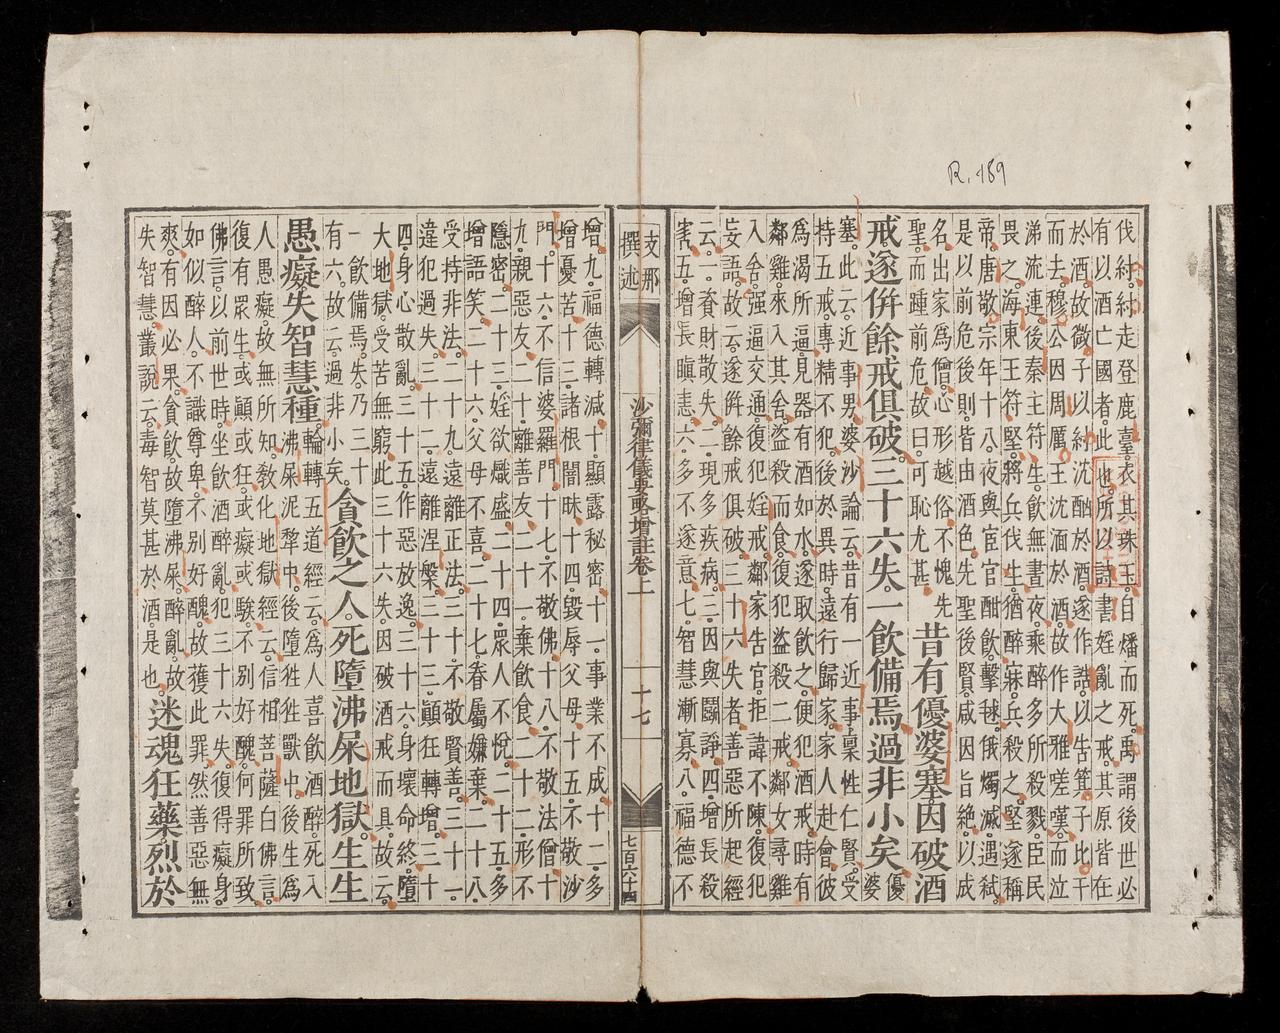 R.189
伐紂。紂走登鹿臺。衣其珠玉。自燔而死。禹謂後世必
有以酒亡國者。此也。所以詩書婬亂之戒。其原皆在
於酒。故微子以紂沈酗於酒。遂作誥。以告箕子比干
而去。穆公因周厲王沈湎於酒。故作大雅嗟嘆。而泣
涕流連。後秦主符生。飲無晝夜。乘醉多所殺戮。臣民
畏之。海東王符堅。將兵伐生。猶醉寐。兵殺之。堅遂稱
帝。唐敬宗年十八。夜與宦官酣飲。擊毬。俄燭滅。遇弒
是以前危後則。皆由酒色。先聖後賢。咸因旨絶。以成
名。出家為僧。心形越俗。不愧先
聖。而踵前危。故曰。可恥尤甚
昔有優婆塞。因破酒
戒。遂併餘戒俱破。三十六失。一飲備焉。過非小矣。優婆
塞。此云近事男。婆沙論云。昔有一近事。稟性仁賢。受
持五戒。專精不犯。後於異時。遠行歸家。家人赴會。彼
為渴所逼。見器有酒如水。遂取飲之。便犯酒戒。時有
鄰雞。來入其舍。盜殺而食。復犯盜殺二戒。鄰女尋雞
入舍。强逼交通。復犯婬戒。鄰家告官。拒諱不陳。復犯
妄語。故云。遂併餘戒俱破。三十六失者。善惡所起經
云。一。資財散失。二。現多疾病。三。因與鬬諍。四。增長殺
害。五。增長瞋恚。六。多不遂意。七。智慧漸寡。八。福德不
支那撰述
沙彌律儀要略增註卷上
十七
七百六十四
增。九。福德轉減。十。顯露秘密。十一。事業不成。十二。多
增憂苦。十三。諸根闇昧。十四。毀辱父母。十五。不敬沙
門。十六。不信婆羅門。十七。不敬佛。十八。不敬法僧。十
九。親惡友。二十。離善友。二十一。棄飲食。二十二。形不
隱密。二十三。婬欲熾盛。二十四。眾人不悅。二十五。多
增語笑。二十六。父母不喜。二十七。眷屬嫌棄。二十八。
受持非法。二十九。遠離正法。三十。不敬賢善。三十一。
違犯過失。三十二。遠離涅槃。三十三。顛狂轉增。三十
四。身心散亂。三十五。作惡放逸。三十六。身壞命終。墮
大地獄。受苦無窮。此三十六失。因破酒戒而具。故云。
一飲備焉。失乃三十
有六。故云。過非小矣。
貪飲之人。死墮沸屎地獄。生生
愚癡。失智慧種。輪轉五道經云。為人喜飲酒醉。死入
沸屎泥犁中。後墮狌狌獸中。後生為
人愚癡。故無所知。教化地獄經云。信相菩薩白佛言。
復有眾生。或顛或狂。或癡或騃。不別好醜。何罪所致
佛言。以前世時。坐飲酒醉亂。犯三十六失。復得癡身。
如似醉人。不識尊卑。不別好醜。故獲此罪。然善惡無
爽。有因必果。貪飲。故墮沸屎。醉亂。故
失智慧。叢說云。毒智莫甚於酒是也。
迷魂狂藥。烈於